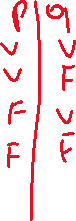 p | q
V | V
V | F
F | V
F | F